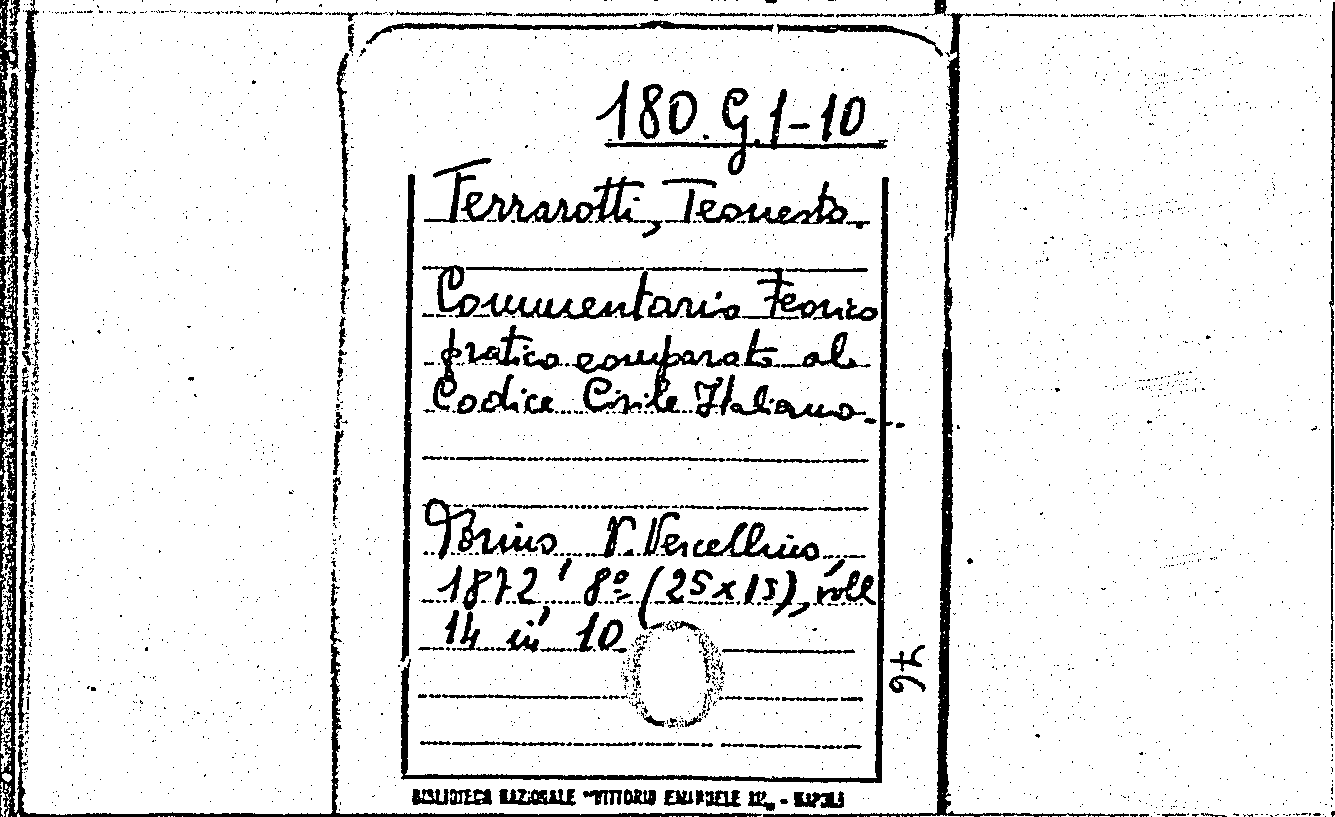 180. G. 1-10
Ferrarotti, Teonesto.
Commentario Teorico
pratico comparato al
Codice Civile Italiano...
Torino V. Vercellino,
1872, 8º (25x15), voll
14 in 10
76
BIBLIOTECA NAZIONALE "VITTORIO EMANUELE III„ - NAPOLI